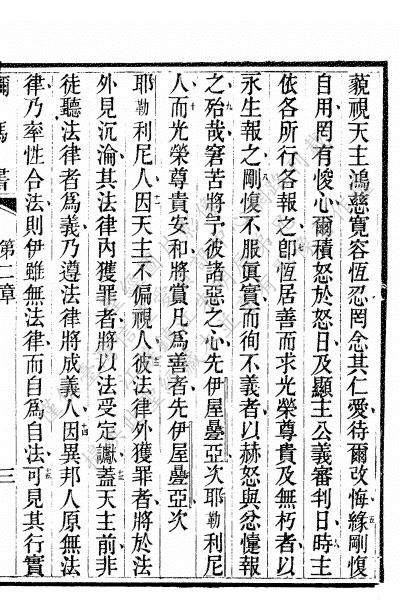 藐視天主鴻慈寬容恆忍罔念其仁愛待爾改悔緣剛愎
自用罔有悛心爾積怒於怒日及顯主公義審判日時主
依各所行各報之卽恆居善而求光榮尊貴及無朽者以
永生報之剛愎不服眞實而徇不義者以赫怒與忿懥報
之殆哉窘苦將予彼諸惡之心先伊屋疊亞次耶勒利尼
人而光榮尊貴安和將賞凡為善者先伊屋疊亞次
耶勒利尼人因天主不偏視人彼法律外獲罪者將於法
外見沉淪其法律內獲罪者將以法受定讞蓋天主前非
徒聽法律者為義乃遵法律將成義人因異邦人原無法
律乃率性合法則伊雖無法律而自為自法可見其行實
第二章
三